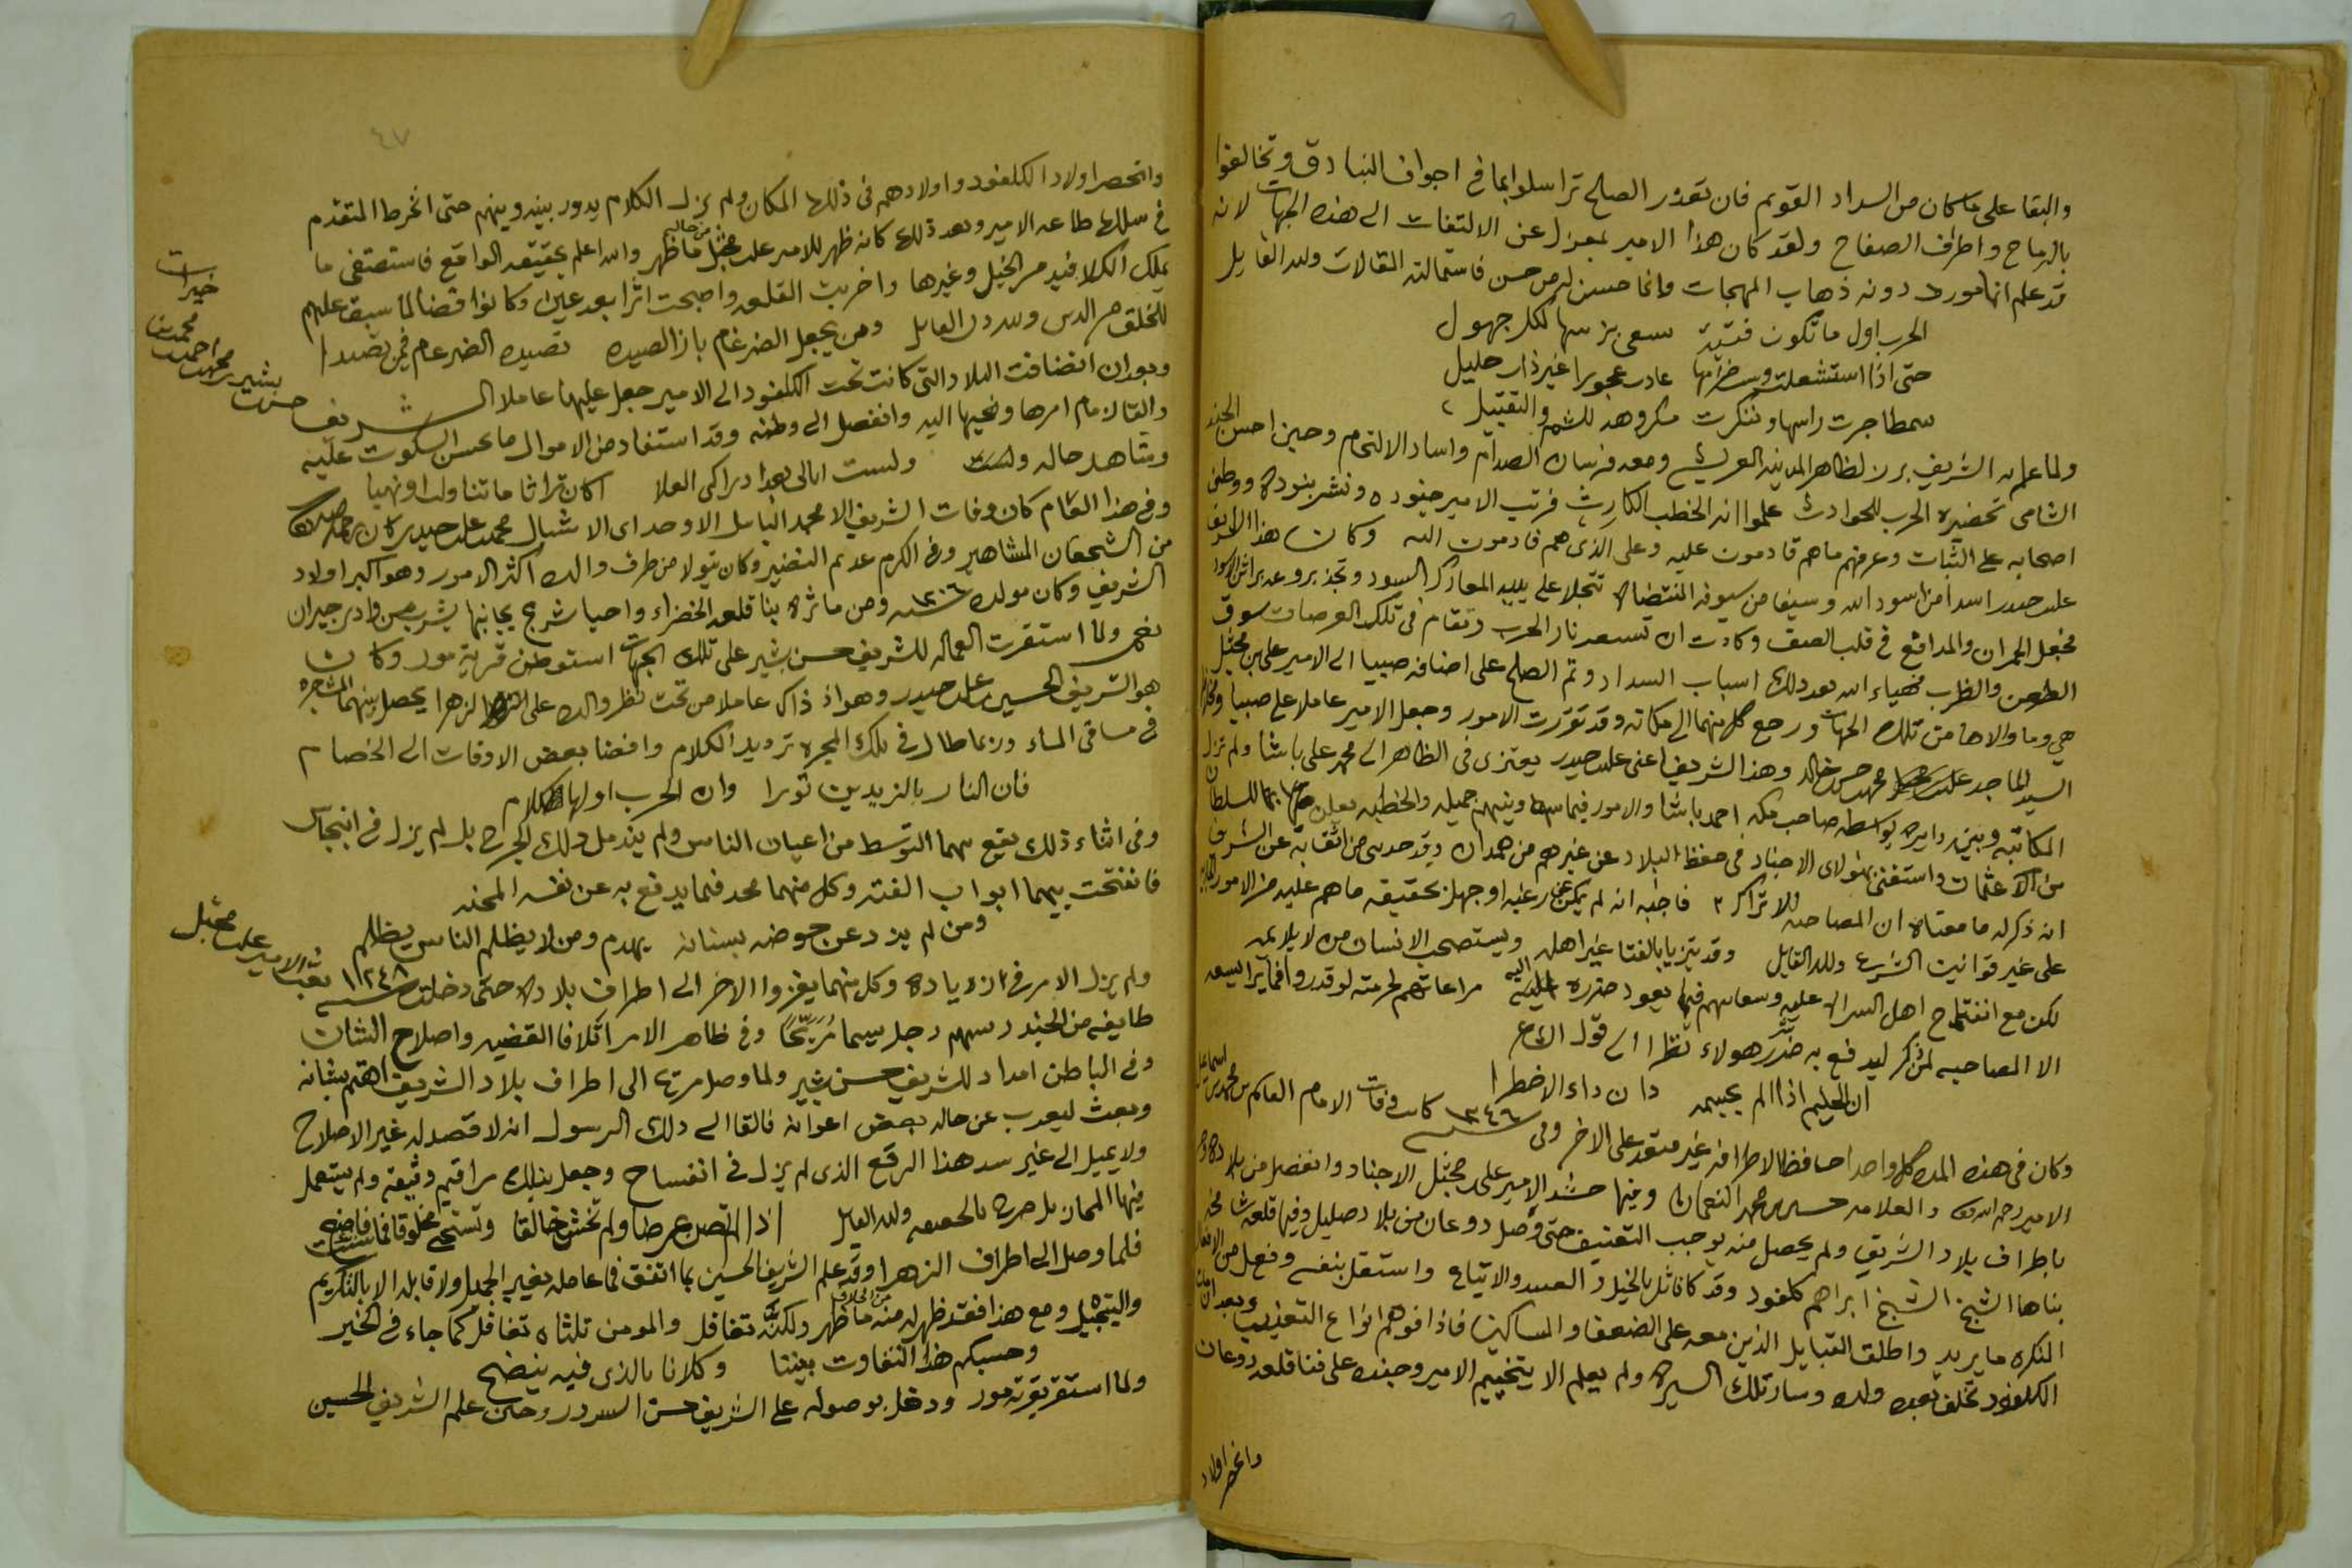 والبقا على ما كان من السداد القويم فان تعذر الصلح تراسلوا بما في اجواف البنادق وتخالفوا
بالرماح واطراف الصفاح ولقد كان هذا الامير بمعزل عن الالتفات الى هذه الجهات لانه
قد علم انها مورد دونه ذهاب المهجات وانما حسن له من حسن فاستمالته المقالات ولله القايل
الحرب اول ما تكون فتية تسعى بزينتها لكل جهول
حتى اذا استشعلت وسب ضرامها عادت عجوزا غير ذات حليل
شمطا جزت راسها وتنكرت مكروهة للشم والتقبيل
ولما علم الشريف برز لظاهر المدينة العريش ومعه فرسان الصدام واساد الالتحام وحين احس الجند
الشامي تحضيره الحرب للحوادث علموا انه الخطب الكارث فرتب الامير جنوده ونشر بنوده ووطن
اصحابه على الثبات وعرفهم ما هم قادمون عليه وعلى الذي هم قادمون اليه وكان هذا الشريف
علي حيدر اسدا من اسود الله وسيفا من سيوفه المنتضاه
فجعل الجمران والمدافع في قلب الصف وكادت ان تسعر نار الحرب وتقام في تلك العرصات سوق
الطعن والظرب فهياء الله بعد ذلك اسباب السداد وتم الصلح على اضافة صبيا الى الامير علي بن مجثل
هي وما والاها من تلك الجهات ورجع كل منهما الى مكانه وقد تقررت الامور وجعل الامير عاملا على صبيا ومخلافها
السيد الماجد علي محمد حسن خالد وهذا الشريف اعني علي حيدر يعتزى في الظاهر الى محمد علي باشا ولم تزل
المكاتبة وبين دايره بواسطة صاحب مكه احمد باشا والامور فيما بينه وبينهم جميله والخطبه يعلن بها للسلطان
من آل عثمان واستغنى بهولاى الاجناد في حفظ البلاد عن غيرهم من همدان وقد حدثني من اثق به عن الشريف
انه ذكر له ما معناه ان المصاحبه للاتراك فاجبه انه لم يكن عن رغبة او جهل بحقيقة ما هم عليه من الامور
على غير قوانيت الشرع ولله القايل وقد يتزيا بالفتا غير اهله ويستصحب الانسان من لا يلايمه
لكن مع انفتاح اهل عليه وسعايتهم فيما يعود ضرره اليه مراعاتهم لحرمته لو قدروا فما تراى يسعه
الا المصاحبه لمن ذكر ليدفع به ضرر شر هولاء نظرا الى قول الشاعر
ان الحليم اذا لم يجبهه دان داء الاضطرا
وكان في هذه المده كل واحد حافظا لاطرافه غير متعد على الاخر وفي سنة ١٢٤٦ كانت وفات الامام العالم محمد بن اسماعيل
الامير رحمه الله والعلامه حسين بن محمد النعمان وفيها حشد الامير علي مجثل الاجناد وانفصل من بلاده
باطراف بلاد الشريف ولم يحصل منه يوجب التعنيف حتى وصل دوعان من بلاد صليل وفيها قلعة
بناها الشيخ الشيخ ابراهم كلفود وقد كان بالخيل والعبيد والاتباع واستقل بنفسه وفعل من الافعال
المنكره ما يريد واطلق القبايل الذين معه على الضعفا والمساكين فاذاقوهم انواع التعذيب وبعد ان مات
الكلفود تخلف بعده ولده وسار تلك السيره ولم يعلم الا بتخييم الامير وجنده على فنا قلعة دوعان
وانحصر اولاد

٤٧
وانحصر اولاد الكلفود واولادهم في ذلك المكان ولم يزل الكلام يدور بينه وبينهم حتى انخرط المتقدم
في سلك طاعه الامير وبعد ذلك كانه ظهر للامير علي مجثل من حاله ما ظهر والله اعلم بحقيقه الواقع فاستصفى ما
يملك الكلافيد من الخيل وغيرها واخربت القلعه واصبحت اثرا بعد عين وكانوا قضا لما سبق عليهم
للخلق من الدين ولله در القايل ومن يجعل الضرغام بازا لصيده تصيده الضرغام فيمن تصيدا
وبعد ان انضافت البلاد التي كانت تحت الكلفود الى الامير جعل عليها عاملا الشريف حسن بشير محمد احمد محمد خيرات
والقا زمام امرها ونهيها اليه وانفصل الى وطنه وقد استفاد من الاموال ما يحسن السكوت عليه
وشاهد حاله ولست ابالي بعد ادراكي العلا اكان تراثا ما تناولت ام نهبا
وفي هذا العام كان وفات الشريف الا محمد الباسل الاوحد ابي الاشبال محمد علي حيدر كان رحمه الله
من الشجعان المشاهير وفي الكرم عديم النضير وكان يتولا من طرف والده اكثر الامور وهو اكبر اولاد
الشريف وكان مولده سنة ١٢٠٦ ومن ماثره بنا قلعة الخضراء واحيا شرج بجانبها يشرب من وادي جيران
نعم ولما استقرت العماله للشريف حسن بشير على تلك الجهات استوطن قرية مور وكان
هو الشريف الحسين علي حيدر وهو اذ ذاك عاملا من تحت نظر والده على الزهرا يحصل بينهما المشاجره
في مساقي الماء وربما طال في تلك المجره ترديد الكلام وافضا بعض الاوقات الى الخصام
فان النار بالزندين تورا وان الحرب اولها كلام
وفي اثناء ذلك يقع بينهما التوسط من اعيان الناس ولم يندمل ذلك الجرح بل لم يزل في انبجاس
فانفتحت بينهما ابواب الفتنه وكل منهما مجد فيما يدفع به عن نفسه المحنه
ومن لم يذد عن حوضه بسنانه يهدم ومن لا يظلم الناس يظلم
ولم يزل الامر في ازدياده وكل منهما يغزوا الاخر الى اطراف بلاده حتى دخلت سنة ١٢٤٨ بعث الامير علي مجثل
طايفه من الجند رسهم رجل يسما مُرَيِّحًا وفي ظاهر الامر اتلافا القضيه واصلاح الشان
وفي الباطن امداد للشريف حسن بشير ولما وصل مريح الى اطراف بلاد الشريف اهتم بشانه
وبعث ليعرب عن حاله بعض اعوانه فالقا الى ذلك الرسول انه لا قصد له غير الاصلاح
ولا يميل الى غير سد هذا الرقع الذي لم يزل في انفساح وجعل بذلك مراقيم وثيقة ولم يستعمل
فيها المجاز بل صرح بالحقيقه ولله القايل اذا لم تصن عرضا ولم تخش خالقا وتستحي مخلوقا فما شئت فاصنع
فلما وصل الى اطراف الزهرا وقد علم الشريف الحسين بما اتفق فما عامله بغير الجميل ولا قابله الا بالتكريم
والتبجيل ومع هذا فقد ظهر له منه من الخلاف ما ظهر ولكنه تغافل والمومن ثلثاه تغافل كما جاء في الخبر
وحسبكم هذا التفاوت بيننا وكلانا بالذي فيه ينضح
ولما استقر بقرية مور ودخل بوصوله على الشريف حسن السرور وحين علم الشريف الحسين